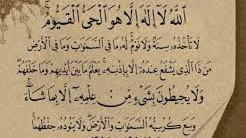 اللَّهُ لَا إِلَٰهَ إِلَّا هُوَ الْحَيُّ الْقَيُّومُ
لَا تَأْخُذُهُ سِنَةٌ وَلَا نَوْمٌ لَهُ مَا فِي السَّمَوَاتِ وَمَا فِي الْأَرْضِ
مَنْ ذَا الَّذِي يَشْفَعُ عِنْدَهُ إِلَّا بِإِذْنِهِ يَعْلَمُ مَا بَيْنَ أَيْدِيهِمْ وَمَا خَلْفَهُمْ
وَلَا يُحِيطُونَ بِشَيْءٍ مِنْ عِلْمِهِ إِلَّا بِمَا شَاءَ
وَسِعَ كُرْسِيُّهُ السَّمَوَاتِ وَالْأَرْضَ وَلَا يَئُودُهُ حِفْظُهُمَا